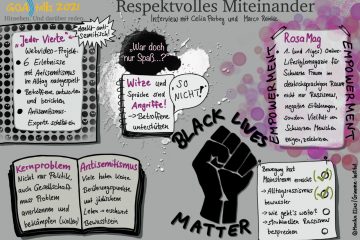 GGA! talks 2021
Hinsehen. Und darüber reden.
Respektvolles Miteinander
Interview mit Colin Perbey und Marco Rienke
"Jeder Vierte"
Webvideo-Projekt
6 Erlebnisse
mit Antisemitismus
im Alltag nachgespielt
Betroffene antworten
und berichten,
Antisemitismus-
Experte schildert
War doch
nur Spaß...?
Witze und
Sprüche sind
Angriffe!
→ Betroffene
unterstützen
SO
NICHT!
RosaMag
Onlinе-
Lifestylemagazin für
Schwarze Frauen im
deutschsprachigen Raum
nicht nur Rassismus,
negative Erfahrungen,
sondern Vielfalt von
Schwarzen Menschen
zeigen, zelebrieren.
EMPOWERMENT
EMPOWERMENT
Kernproblem
Nicht nur Politik,
auch Gesellschaft
muss Problem
anerkennen und
bekämpfen (wollen)
Antisemitismus
Viele haben keine
Berührungspunkte
mit jüdischem
Leben → erschwert
Bewusstsein
BLACK LIVES
MATTER
Bewegung hat
Mainstream erreicht
→ Alltagsrassismus
bewusster
→ wie geht's weiter?
→ strukturellen Rassismus
besprechen